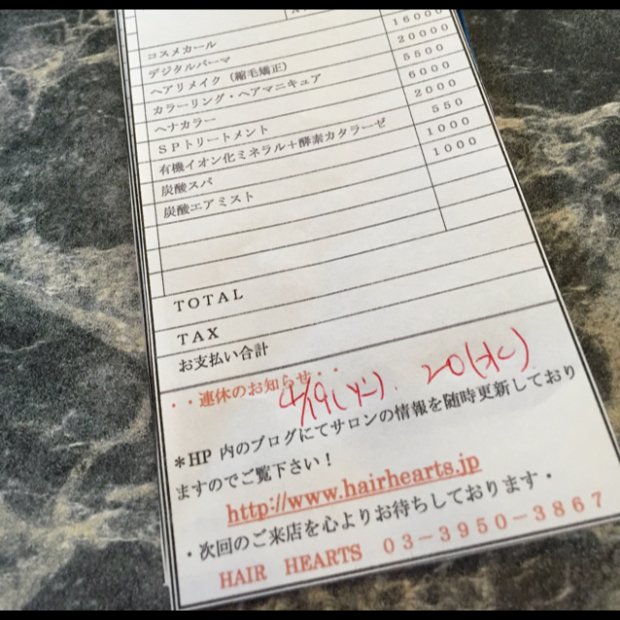 コスメカール 16000
デジタルパーマ 20000
ヘアリメイク（縮毛矯正） 5500
カラーリング・ヘアマニキュア 6000
ヘナカラー 2000
ＳＰトリートメント 550
有機イオン化ミネラル＋酵素カタラーゼ 1000
炭酸スパ 1000
炭酸エアミスト
TOTAL
TAX
お支払い合計
・・連休のお知らせ・・
4/19(火). 20(水)
＊HP 内のブログにてサロンの情報を随時更新しており
ますのでご覧下さい！
http://www.hairhearts.jp
・次回のご来店を心よりお待ちしております・
HAIR HEARTS 03－3950－3867